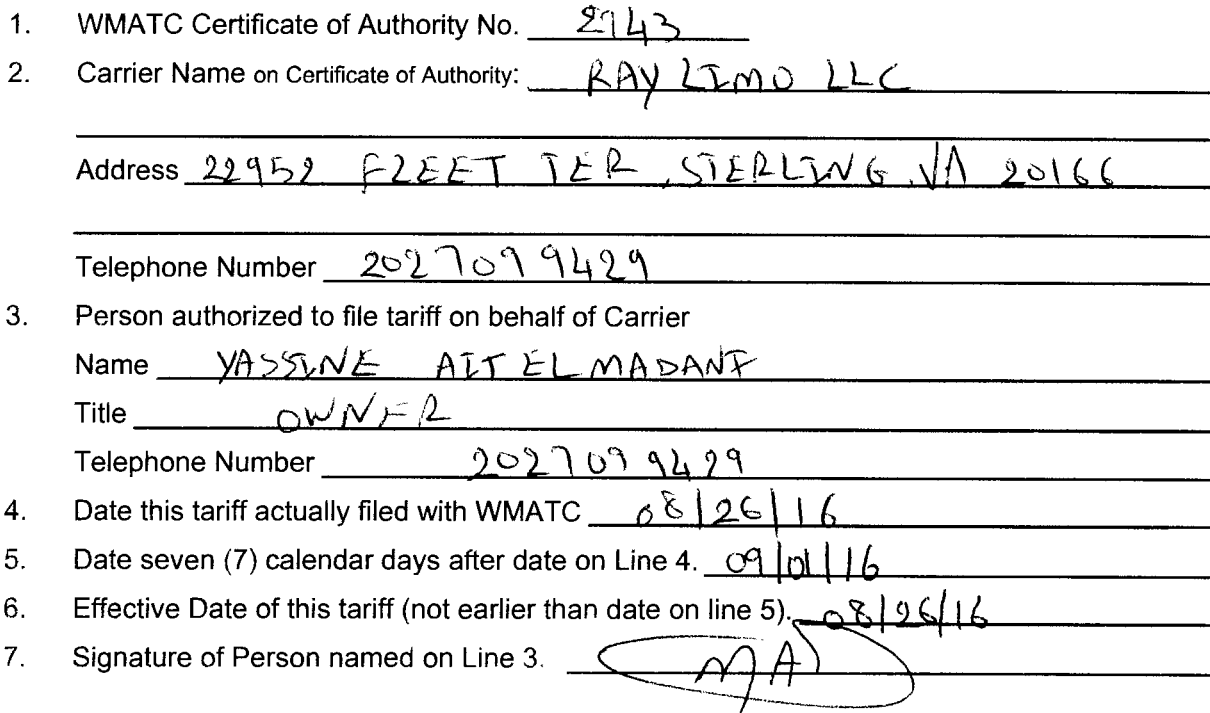 1. WMATC Certificate of Authority No. 2743
2. Carrier Name on Certificate of Authority: RAY LIMO LLC
Address 22952 FLEET TER, STERLING, VA 20166
Telephone Number 2027099429
3. Person authorized to file tariff on behalf of Carrier
Name YASSINE AIT EL MADANI
Title OWNER
Telephone Number 2027099429
4. Date this tariff actually filed with WMATC 08/26/16
5. Date seven (7) calendar days after date on Line 4. 09/01/16
6. Effective Date of this tariff (not earlier than date on line 5). 08/26/16
7. Signature of Person named on Line 3. MA